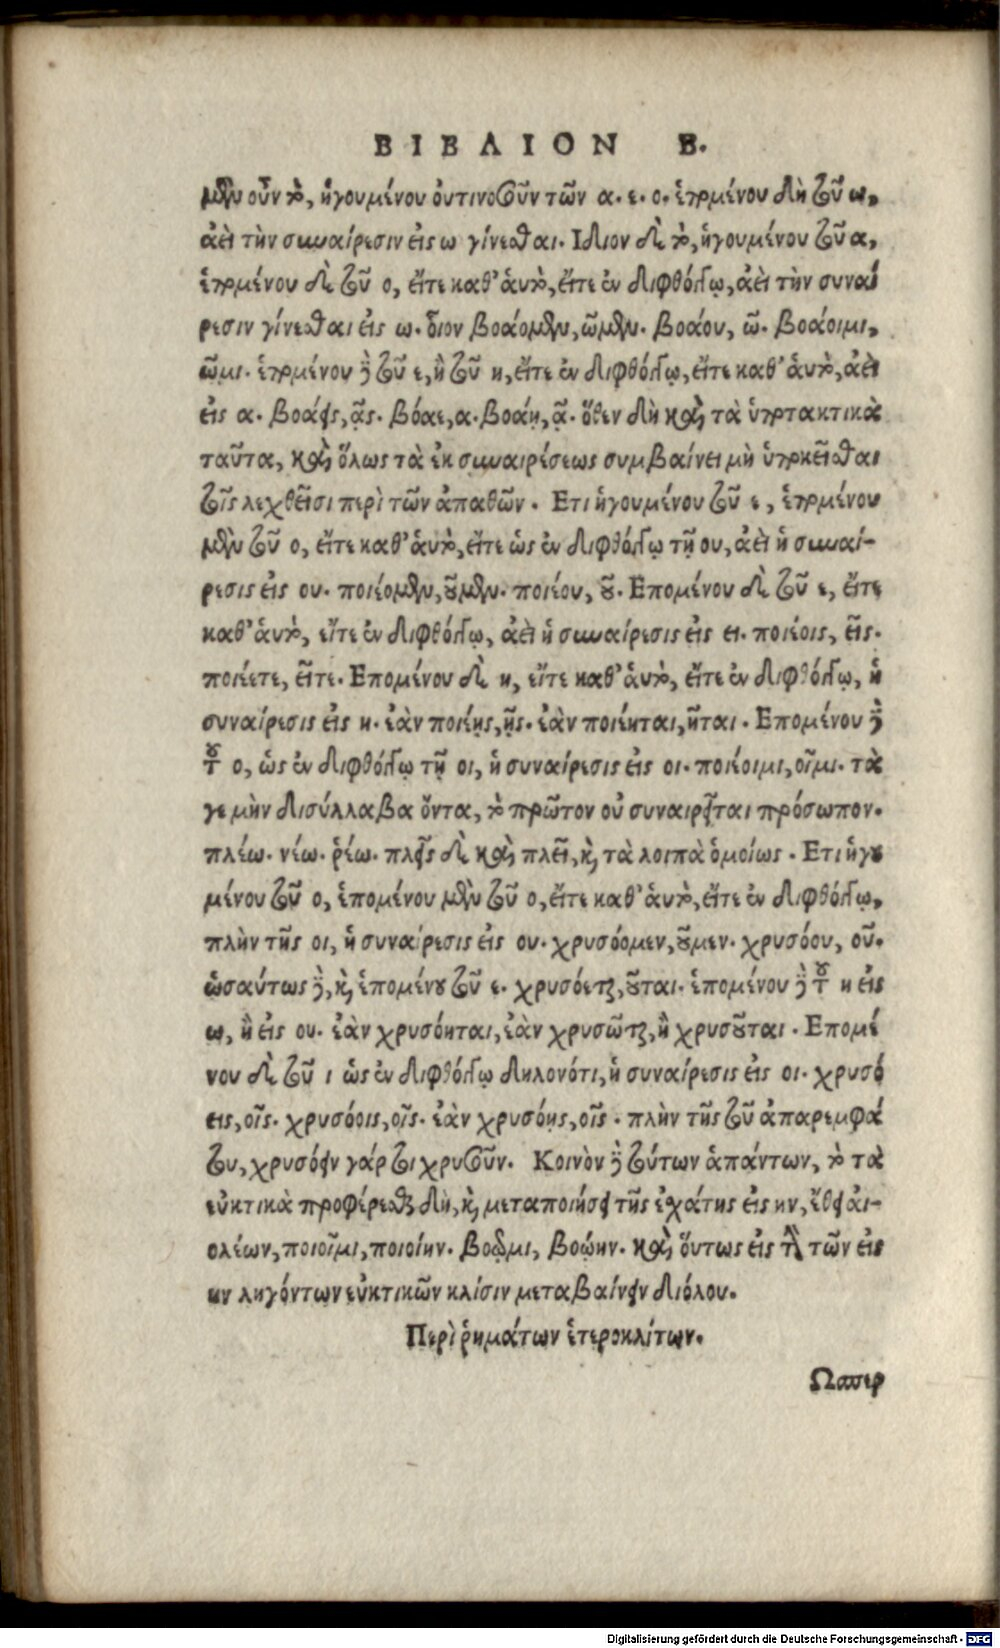 ΒΙΒΛΙΟΝ Β.
μὲν οὖν τὸ, ἡγουμένου οὑτινοσοῦν τῶν α. ε. ο. ἑπομένου δὴ τοῦ ω,
ἀεὶ τὴν συναίρεσιν εἰς ω γίνεσθαι. Ιδιον δὲ τὸ, ἡγουμένου τοῦ α,
ἑπομένου δὲ τοῦ ο, εἴτε καθ' ἁυτὸ, εἴτε ἐν διφθόγγῳ, ἀεὶ τὴν συναί
ρεσιν γίνεσθαι εἰς ω. οἷον βοάομεν, ῶμεν. βοάου, ῶ. βοάοιμι,
ῷμι. ἑπομένου δὲ τοῦ ε, ἢ τοῦ η, εἴτε ἐν διφθόγγῳ, εἴτε καθ' ἁυτὸ, ἀεὶ
εἰς α. βοάεις, ᾷς. βόαε, α. βοάῃ, ᾷ. ὅθεν δὴ καὶ τὰ ὑποτακτικὰ
ταῦτα, καὶ ὅλως τὰ ἐκ συναιρέσεως συμβαίνει μὴ ὑποκεῖσθαι
τοῖς λεχθεῖσι περὶ τῶν ἀπαθῶν. Ετι ἡγουμένου τοῦ ε, ἑπομένου
μὲν τοῦ ο, εἴτε καθ' ἁυτὸ, εἴτε ὡς ἐν διφθόγγῳ τῇ ου, ἀεὶ ἡ συναί-
ρεσις εἰς ου. ποιέομεν, οῦμεν. ποιέου, οῦ. Επομένου δὲ τοῦ ε, εἴτε
καθ' ἁυτὸ, εἴτε ἐν διφθόγγῳ, ἀεὶ ἡ συναίρεσις εἰς ει. ποιέεις, εῖς.
ποιέετε, εῖτε. Επομένου δὲ η, εἴτε καθ' ἁυτὸ, εἴτε ἐν διφθόγγῳ, ἡ
συναίρεσις εἰς η. ἐὰν ποιέῃς, ῇς. ἐὰν ποιέηται, ῆται. Επομένου δὲ
τοῦ ο, ὡς ἐν διφθόγγῳ τῇ οι, ἡ συναίρεσις εἰς οι. ποιέοιμι, οῖμι. τὰ
γε μὴν δισύλλαβα ὄντα, τὸ πρῶτον οὐ συναιρεῖται πρόσωπον.
πλέω. νέω. ῥέω. πλεῖς δὲ καὶ πλεῖ, καὶ τὰ λοιπὰ ὁμοίως. Ετι ἡγου
μένου τοῦ ο, ἑπομένου μὲν τοῦ ο, εἴτε καθ' ἁυτὸ, εἴτε ἐν διφθόγγῳ,
πλὴν τῆς οι, ἡ συναίρεσις εἰς ου. χρυσόομεν, οῦμεν. χρυσόου, οῦ.
ὡσαύτως δὲ, καὶ ἑπομένου τοῦ ε. χρυσόεται, οῦται. ἑπομένου δὲ τοῦ η εἰς
ω, ἢ εἰς ου. ἐὰν χρυσόηται, ἐὰν χρυσῶται, ἢ χρυσοῦται. Επομέ
νου δὲ τοῦ ι ὡς ἐν διφθόγγῳ δηλονότι, ἡ συναίρεσις εἰς οι. χρυσό
εις, οῖς. χρυσόοις, οῖς. ἐὰν χρυσόῃς, οῖς. πλὴν τῆς τοῦ ἀπαρεμφά
του, χρυσόειν γάρ τοι χρυσοῦν. Κοινὸν δὲ τούτων ἁπάντων, τὸ τὰ
εὐκτικὰ προφέρεσθαι δὴ, καὶ μεταποιήσει τῆς ἐσχάτης εἰς ην, ἔθει αἰ-
ολέων, ποιοῖμι, ποιοίην. βοῷμι, βοῴην. καὶ οὕτως εἰς τὴν τῶν εἰς
ην ληγόντων εὐκτικῶν κλίσιν μεταβαίνειν διόλου.
Περὶ ῥημάτων ἑτεροκλίτων.
Ωσπερ
Digitalisierung gefördert durch die Deutsche Forschungsgemeinschaft - DFG